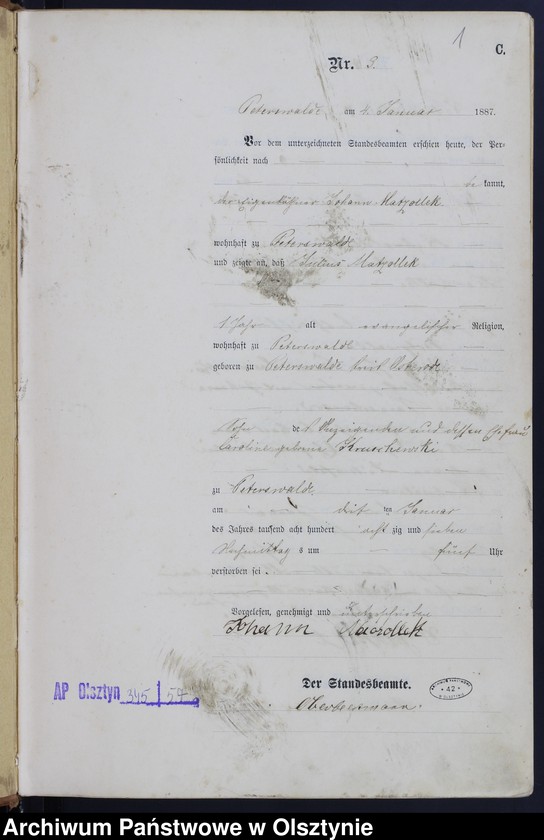 1
C.
Nr. 3.
Peterswalde, am 4. Januar 1887.
Vor dem unterzeichneten Standesbeamten erschien heute, der Per-
sönlichkeit nach
be kannt,
der Eigenkäthner Johann Matzollek
wohnhaft zu Peterswalde
und zeigte an, daß Matzollek
1 Jahr alt evangelischer Religion,
wohnhaft zu Peterswalde
geboren zu Peterswalde Kreis Osterode
Sohn des Anzeigenden und dessen Ehefrau
Caroline geborene Kruschewski
zu Peterswalde
am ten Januar
des Jahres tausend acht hundert acht zig und sieben
Nachmittag s um fünf Uhr
verstorben sei.
Vorgelesen, genehmigt und unterschrieben
Johann
Der Standesbeamte.
AP Olsztyn
42
Archiwum Państwowe w Olsztynie